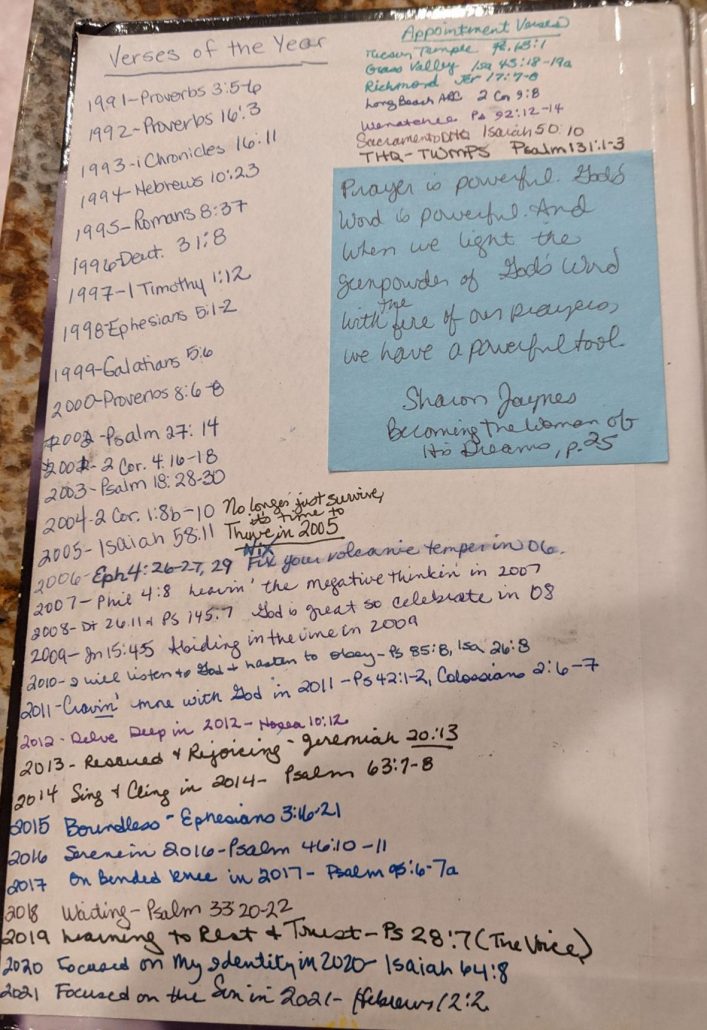 Verses of the Year
1991-Proverbs 3:5-6
1992-Proverbs 16:3
1993-1 Chronicles 16:11
1994-Hebrews 10:23
1995-Romans 8:37
1996-Deut. 31:8
1997-1 Timothy 1:12
1998-Ephesians 5:1-2
1999-Galatians 5:6
2000-Proverbs 8:6-8
2002-Psalm 27:14
2001-2 Cor. 4:16-18
2003-Psalm 18:28-30
2004-2 Cor. 1:8b-10
2005-Isaiah 58:11 No longer just survive,
it's time to
Thrive in 2005
Nix
2006-Eph 4:26-27, 29 Fix your volcanic temper in 06.
2007-Phil 4:8 leavin' the negative thinkin' in 2007
2008-Dt 26:11 & PS 145:7 God is great so celebrate in 08
2009-Jn 15:4-5 Abiding in the vine in 2009
2010-I will listen to God & hasten to obey-Ps 85:8, Isa 26:8
2011-Cravin' more with God in 2011-Ps 42:1-2, Colossians 2:6-7
2012-Delve Deep in 2012-Hosea 10:12
2013-Rescued & Rejoicing-Jeremiah 20:13
2014 Sing & Cling in 2014-Psalm 63:7-8
2015 Boundless-Ephesians 3:16-21
2016 Serene in 2016-Psalm 46:10-11
2017 On Bended knee in 2017-Psalm 95:6-7a
2018 Waiting-Psalm 33:20-22
2019 Learning to Rest & Trust-Ps 28:7 (The Voice)
2020 Focused on My Identity in 2020-Isaiah 64:8
2021 Focused on the Son in 2021-Hebrews 12:2
Appointment Verses
Tucson Temple 63:1
Grass Valley Isa 45:18-19a
Richmond Jer 17:7-8
Long Beach ARC 2 Cor 9:8
Wenatchee Ps 92:12-14
Sacramento DHQ Isaiah 50:10
THQ-TWMPS Psalm 131:1-3
Prayer is powerful. God's
Word is powerful. And
when we light the
gunpowder of God's Word
with the fire of our prayers,
we have a powerful tool.
Sharon Jaynes
Becoming the Woman of
His Dreams, p. 25